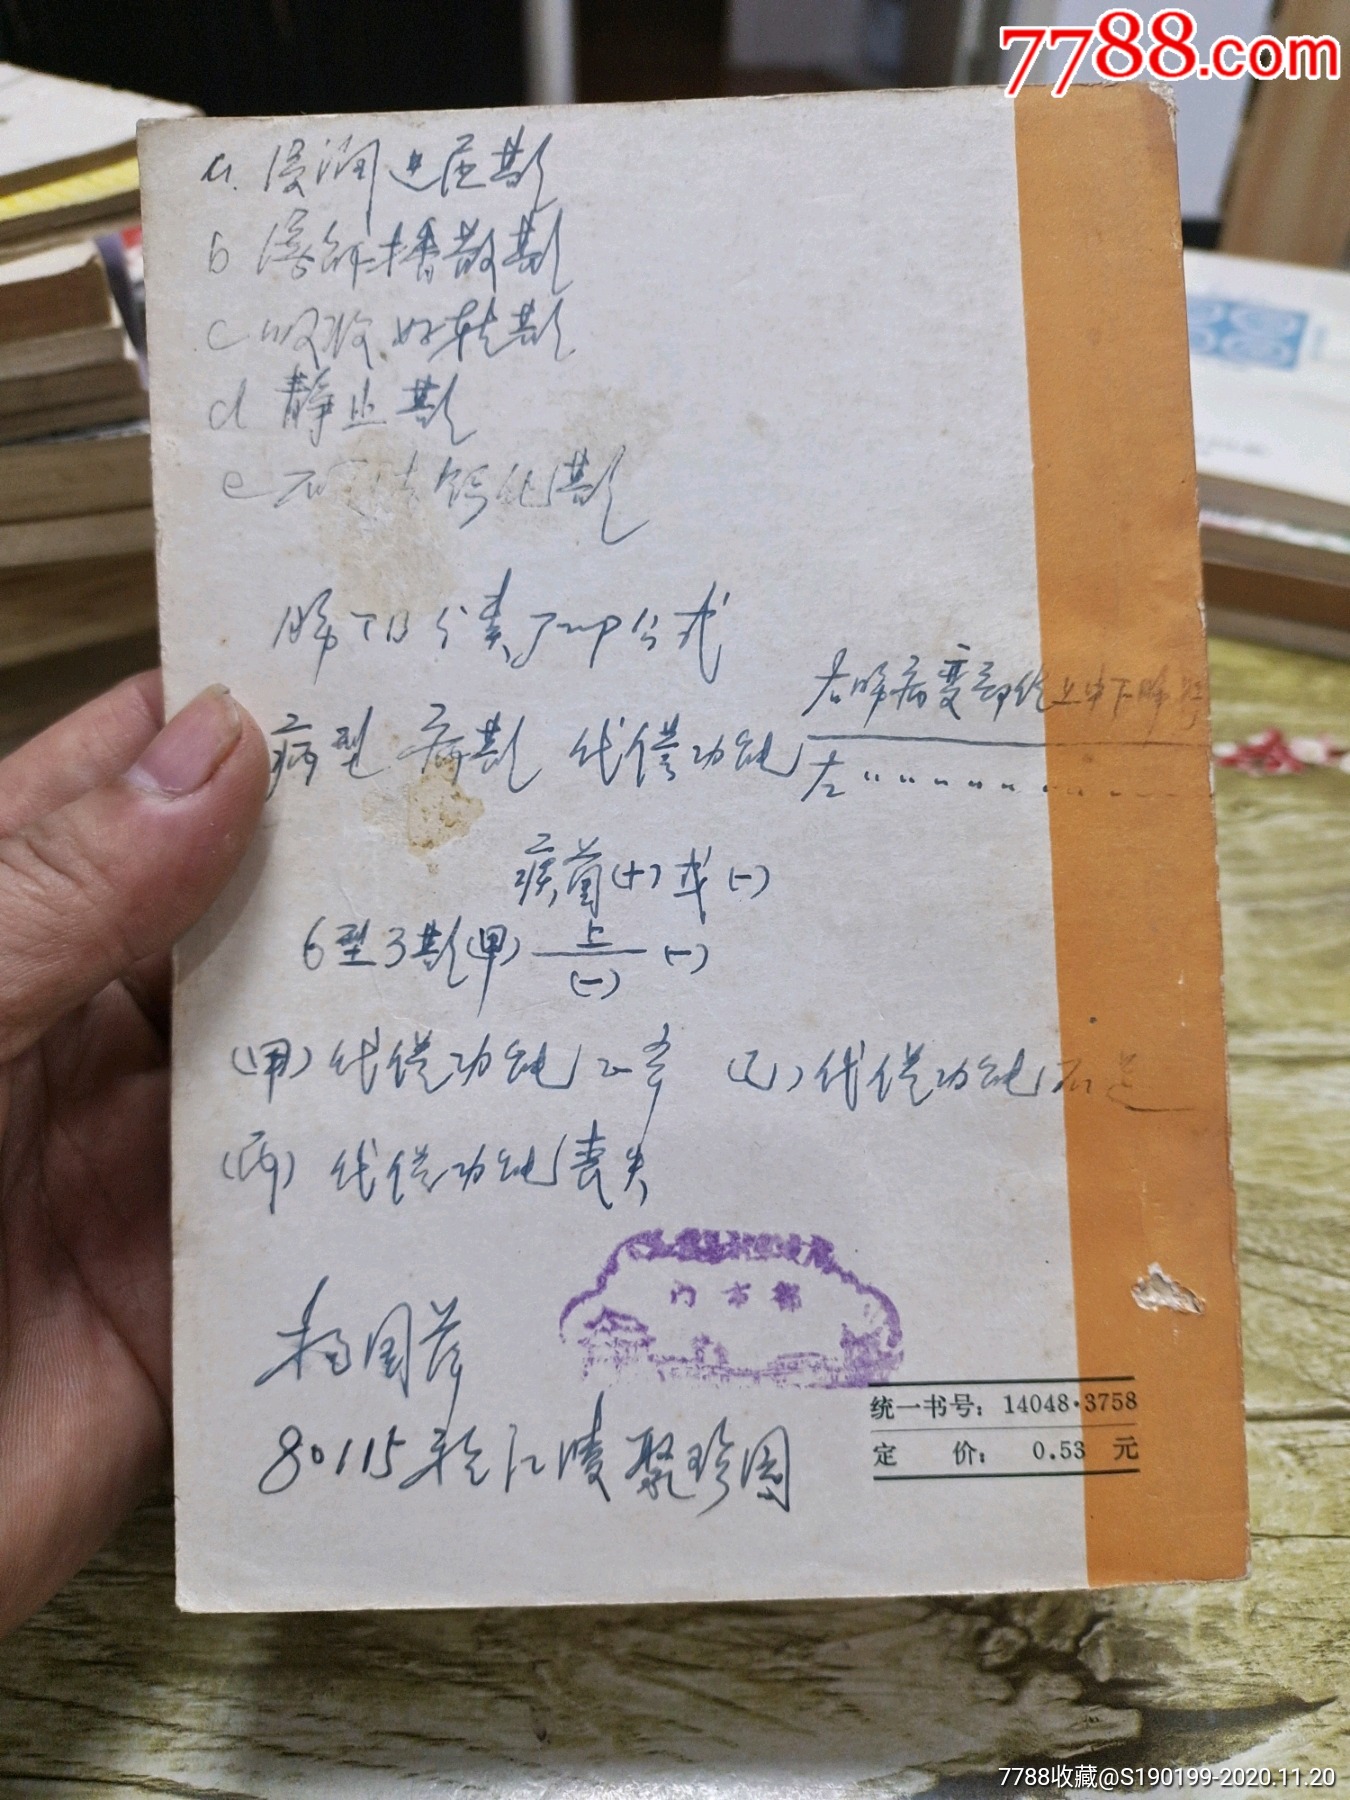 7788.com
a. 浸润进展期
b 溶解播散期
c 吸收好转期
d 静止期
e 硬结钙化期
肺TB分类 公式
病型 病期 代偿功能 右肺病变部位上中下肺野
左 〃〃〃〃〃〃
痰菌(+)或(-)
6型3期(甲) 上/(-) (-)
(甲)代偿功能正常 (乙)代偿功能不足
(丙)代偿功能丧失
杨国
80115 江陵聚珍园
门市部
统一书号：14048·3758
定 价： 0.53 元
7788收藏@S190199-2020.11.20